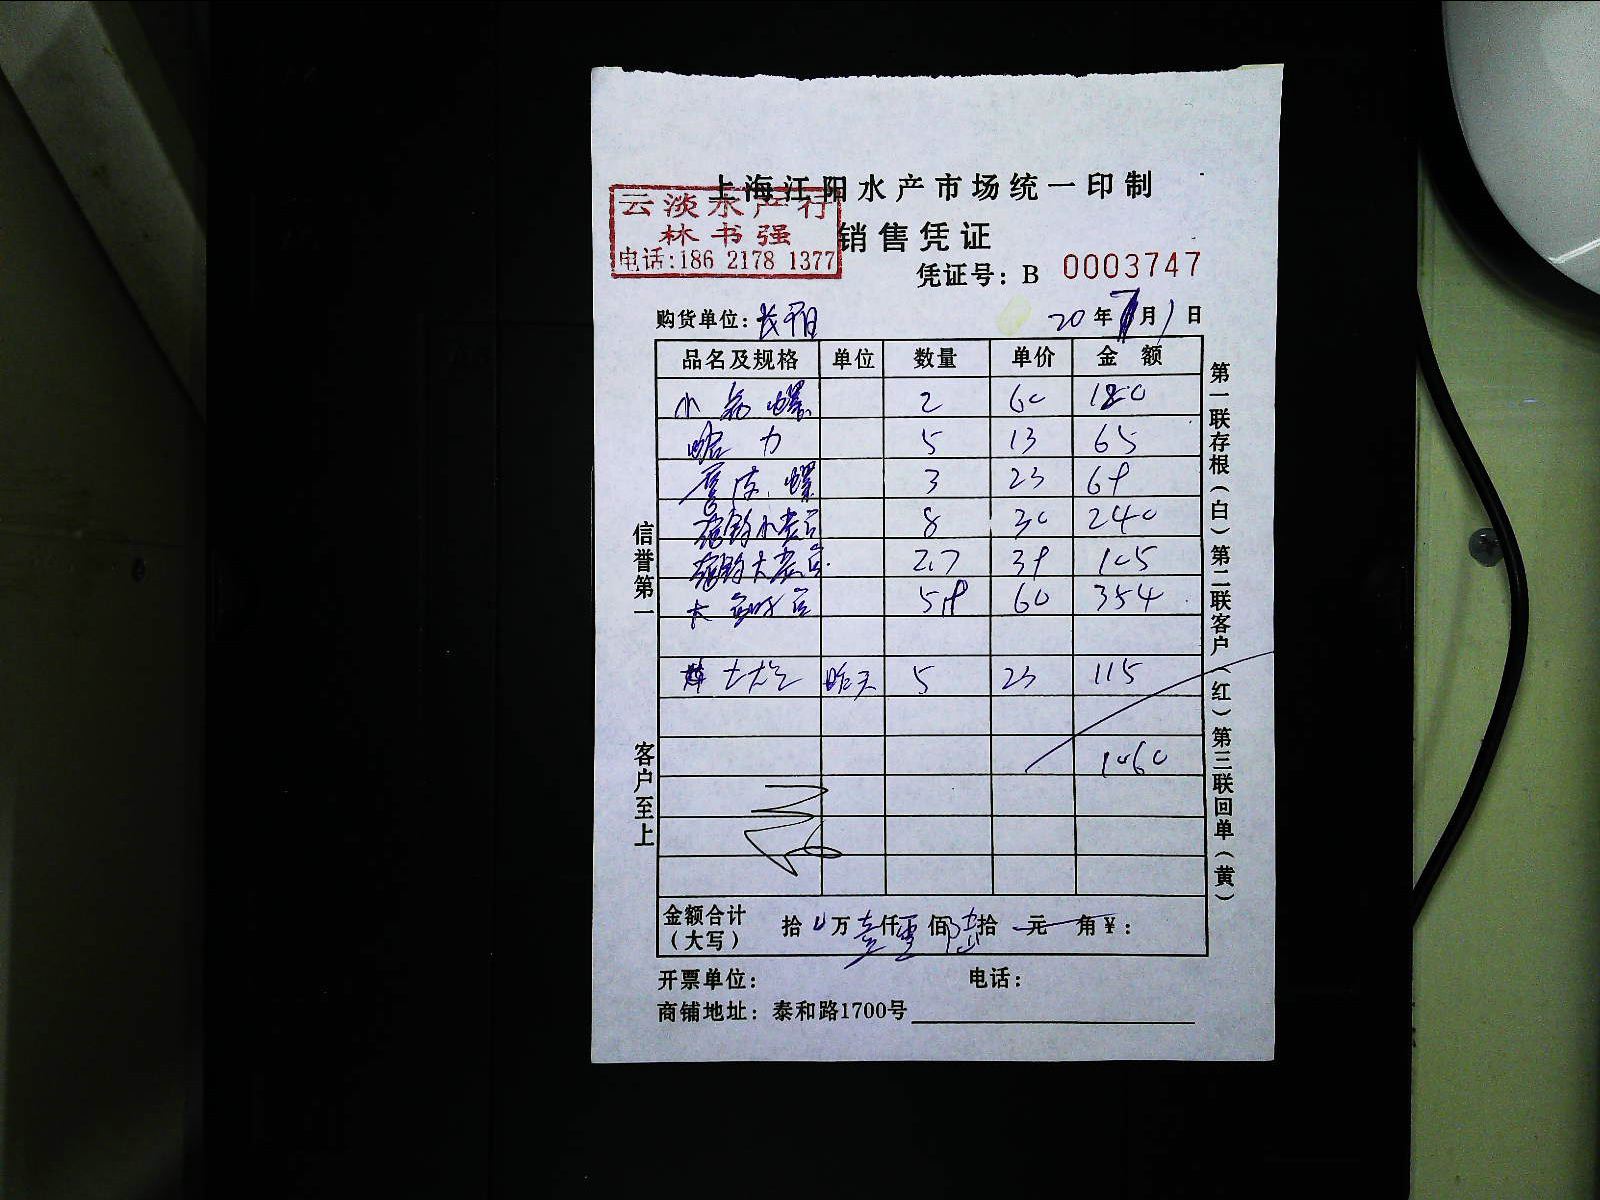 上海江阳水产市场统一印制
云淡水产行
林书强
电话:186 2178 1377
销售凭证
凭证号: B 0003747
购货单位:
20年7月1日
品名及规格 单位 数量 单价 金额
小 螺 2 60 180
哈 力 5 13 65
皮 螺 3 23 69
小 8 30 240
大 2.7 39 105
大 5.9 60 354
昨天 5 23 115
1060
金额合计(大写) 拾 万 壹仟零佰陆拾 元 角 ¥:
开票单位: 电话:
商铺地址: 泰和路1700号
信誉第一
客户至上
第一联存根(白)第二联客户(红)第三联回单(黄)